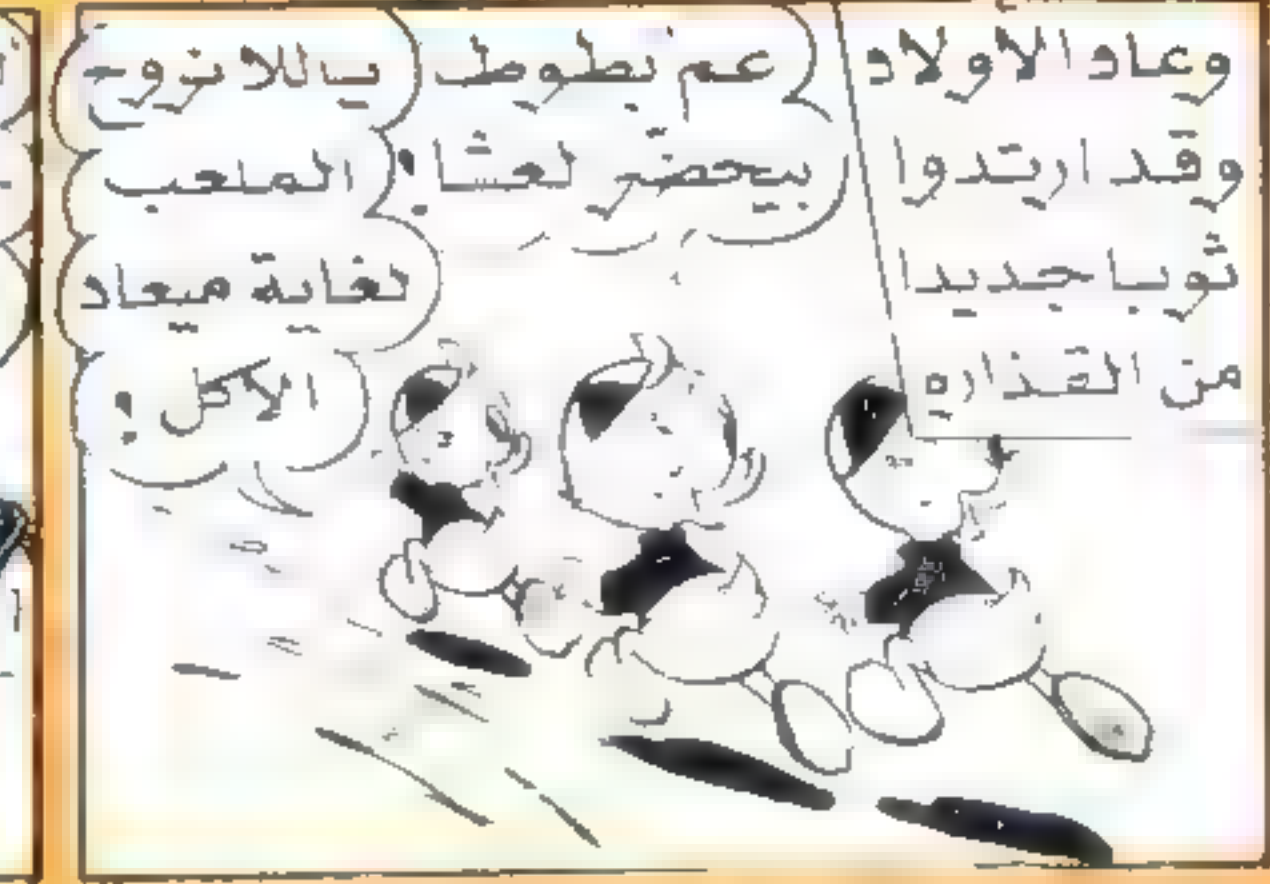 وعاد الأولاد
وقد ارتدوا
ثوبا جديدا
من القذاره
عم بطوط
بيحضر لعشا!
ياللا نروح
الملعب
لغاية ميعاد
الأكل!